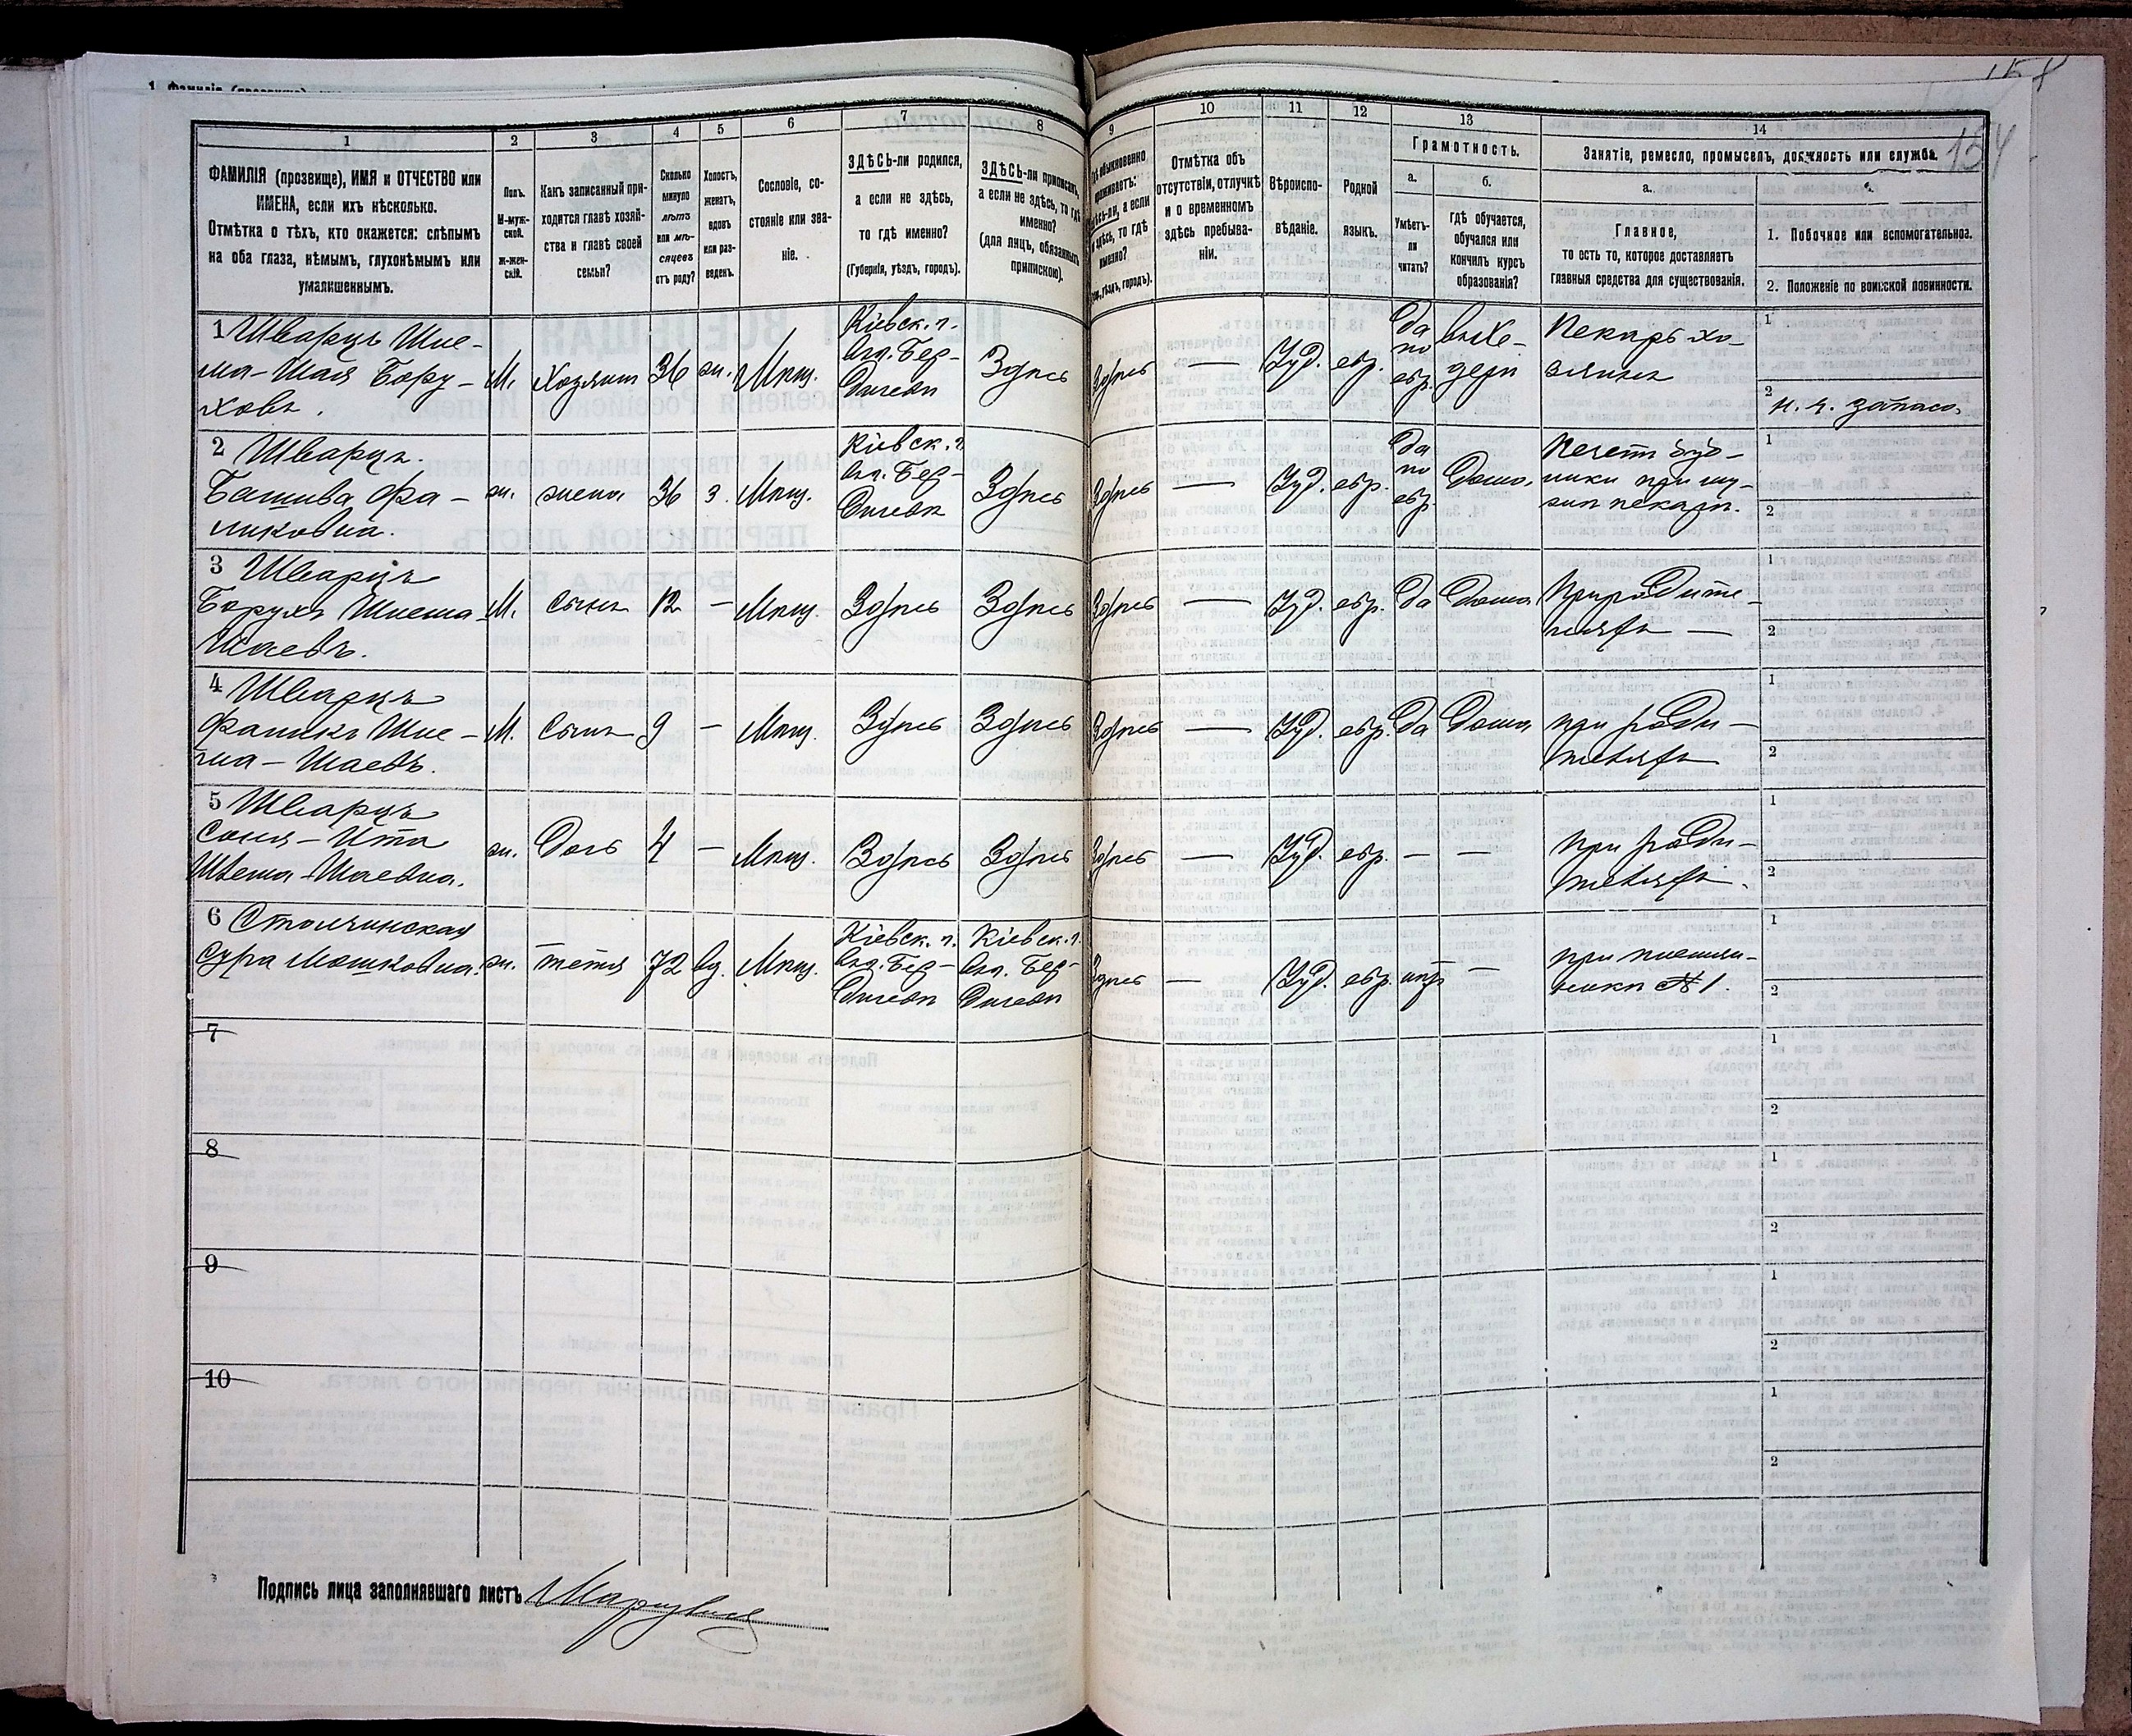 1 2 3 4 5 6 7 8
ФАМИЛІЯ (прозвище), ИМЯ и ОТЧЕСТВО или
ИМЕНА, если ихъ нѣсколько.
Отмѣтка о тѣхъ, кто окажется: слѣпымъ
на оба глаза, нѣмымъ, глухонѣмымъ или
умалишеннымъ.
Полъ.
М-муж-
ской.
Ж-жен-
скій.
Какъ записанный при-
ходится главѣ хозяй-
ства и главѣ своей
семьи?
Сколько
минуло
лѣтъ
или мѣ-
сяцевъ
отъ роду?
Холостъ,
женатъ,
вдовъ
или раз-
веденъ.
Сословіе, со-
стояніе или зва-
ніе.
ЗДѢСЬ-ли родился,
а если не здѣсь,
то гдѣ именно?
(Губернія, уѣздъ, городъ).
ЗДѢСЬ-ли приписанъ,
а если не здѣсь, то гдѣ
именно?
(для лицъ, обязанныхъ
припискою).
9 10 11 12 13 14
обыкновенно
проживаетъ:
здѣсь-ли, а если
не здѣсь, то гдѣ
именно?
уѣздъ, городъ).
Отмѣтка объ
отсутствіи, отлучкѣ
и о временномъ
здѣсь пребыва-
ніи.
Вѣроиспо-
вѣданіе.
Родной
языкъ.
Грамотность.
а.
Умѣетъ-
ли
читать?
б.
гдѣ обучается,
обучался или
кончилъ курсъ
образованія?
Занятіе, ремесло, промыселъ, должность или служба.
154
а.
Главное,
то есть то, которое доставляетъ
главныя средства для существованія.
1. Побочное или вспомогательное.
2. Положеніе по воинской повинности.
1 Шварцъ Шле-
ма-Шая Бору-
ховъ.
М. Хозяинъ 36 ж. Мѣщ.
Кіевск. г.
въ г. Бер-
дичевѣ
Здѣсь Здѣсь — Іуд. евр.
да
по
евр.
въ Хе-
дерѣ
Пекарь хо-
зяинъ
1
2 н. ч. запаса.
2 Шварцъ
Башива Фа-
ликовна.
ж. жена 36 з. Мѣщ.
Кіевск. г.
въ г. Бер-
дичевѣ
Здѣсь Здѣсь — Іуд. евр.
да
по
евр.
Дома.
Печетъ буб-
лики при му-
жѣ пекарѣ.
1
2
3 Шварцъ
Борухъ Шлема
Шаевъ.
М. Сынъ 12 — Мѣщ. Здѣсь Здѣсь Здѣсь — Іуд. евр. да Дома
При родите-
ляхъ —
1
2
4 Шварцъ
Фаликъ Шле-
ма-Шаевъ.
М. Сынъ 9 — Мѣщ. Здѣсь Здѣсь Здѣсь — Іуд. евр. да Дома
при роди-
теляхъ
1
2
5 Шварцъ
Соня-Ита
Шлема-Шаевна.
ж. Дочь 4 — Мѣщ. Здѣсь Здѣсь Здѣсь — Іуд. евр. — —
при роди-
теляхъ.
1
2
6 Столчинская
Сура Мошковна.
ж. тетя 72 вд. Мѣщ.
Кіевск. г.
въ г. Бер-
дичевѣ
Кіевск. г.
въ г. Бер-
дичевѣ
Здѣсь — Іуд. евр. нѣтъ —
при племян-
никѣ №1.
1
2
7
1
2
8
1
2
9
1
2
10
1
2
Подпись лица заполнявшаго листъ